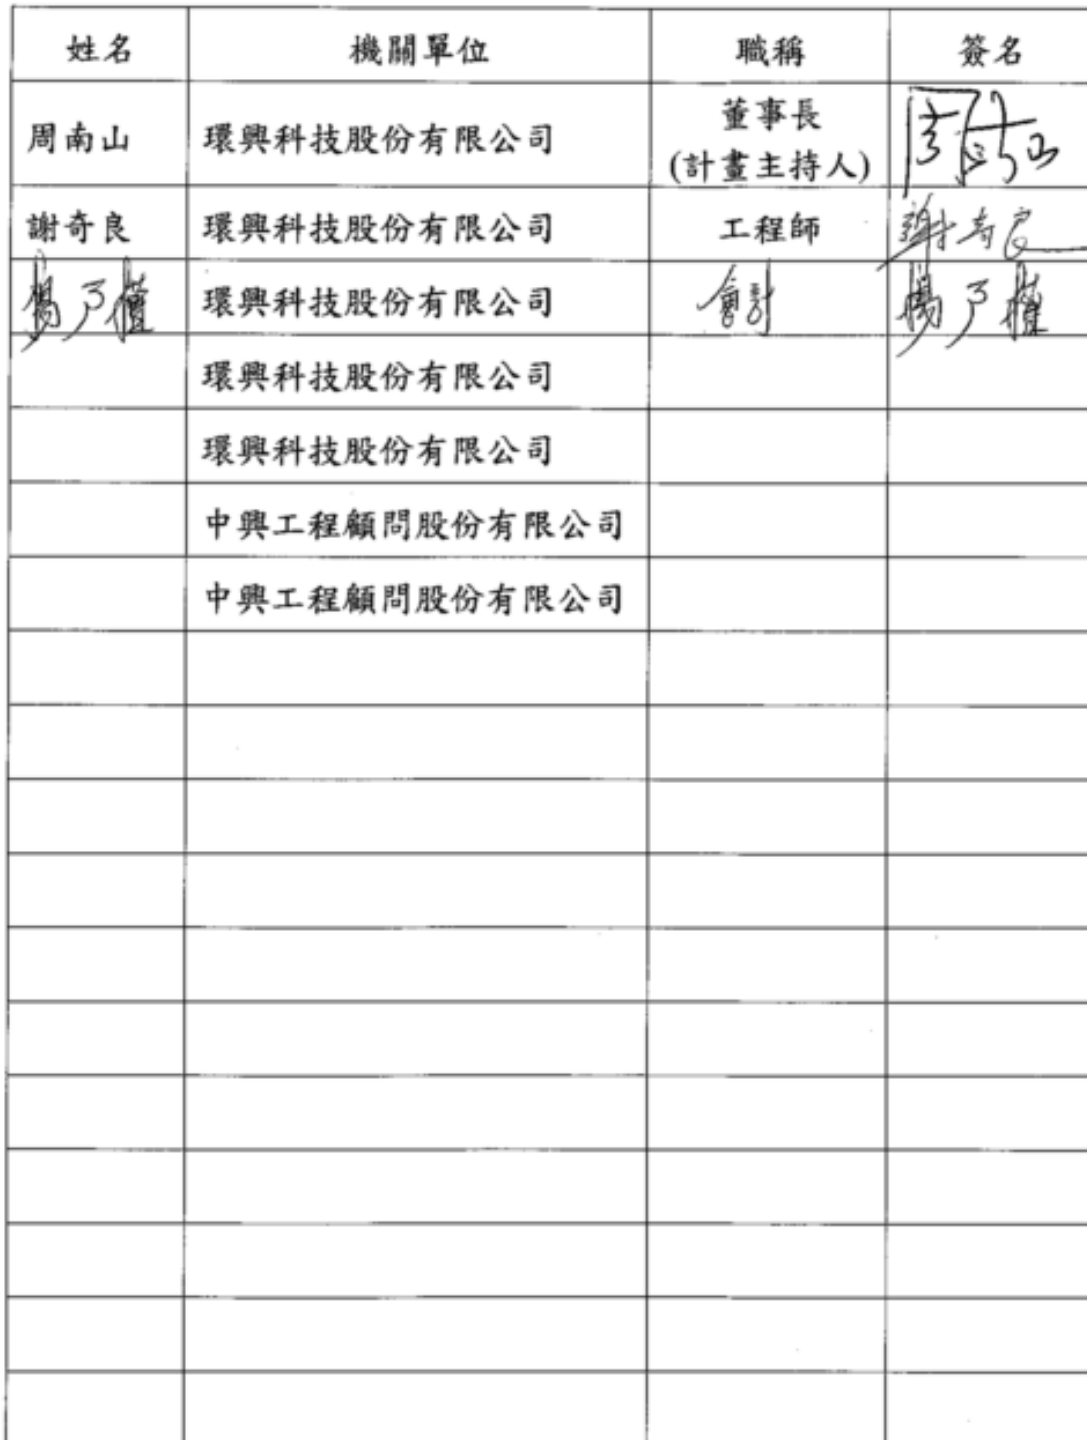 姓名 機關單位 職稱 簽名
周南山 環興科技股份有限公司 董事長 周南山
(計畫主持人)
謝奇良 環興科技股份有限公司 工程師 謝奇良
楊 環興科技股份有限公司 會計 楊
環興科技股份有限公司
環興科技股份有限公司
中興工程顧問股份有限公司
中興工程顧問股份有限公司